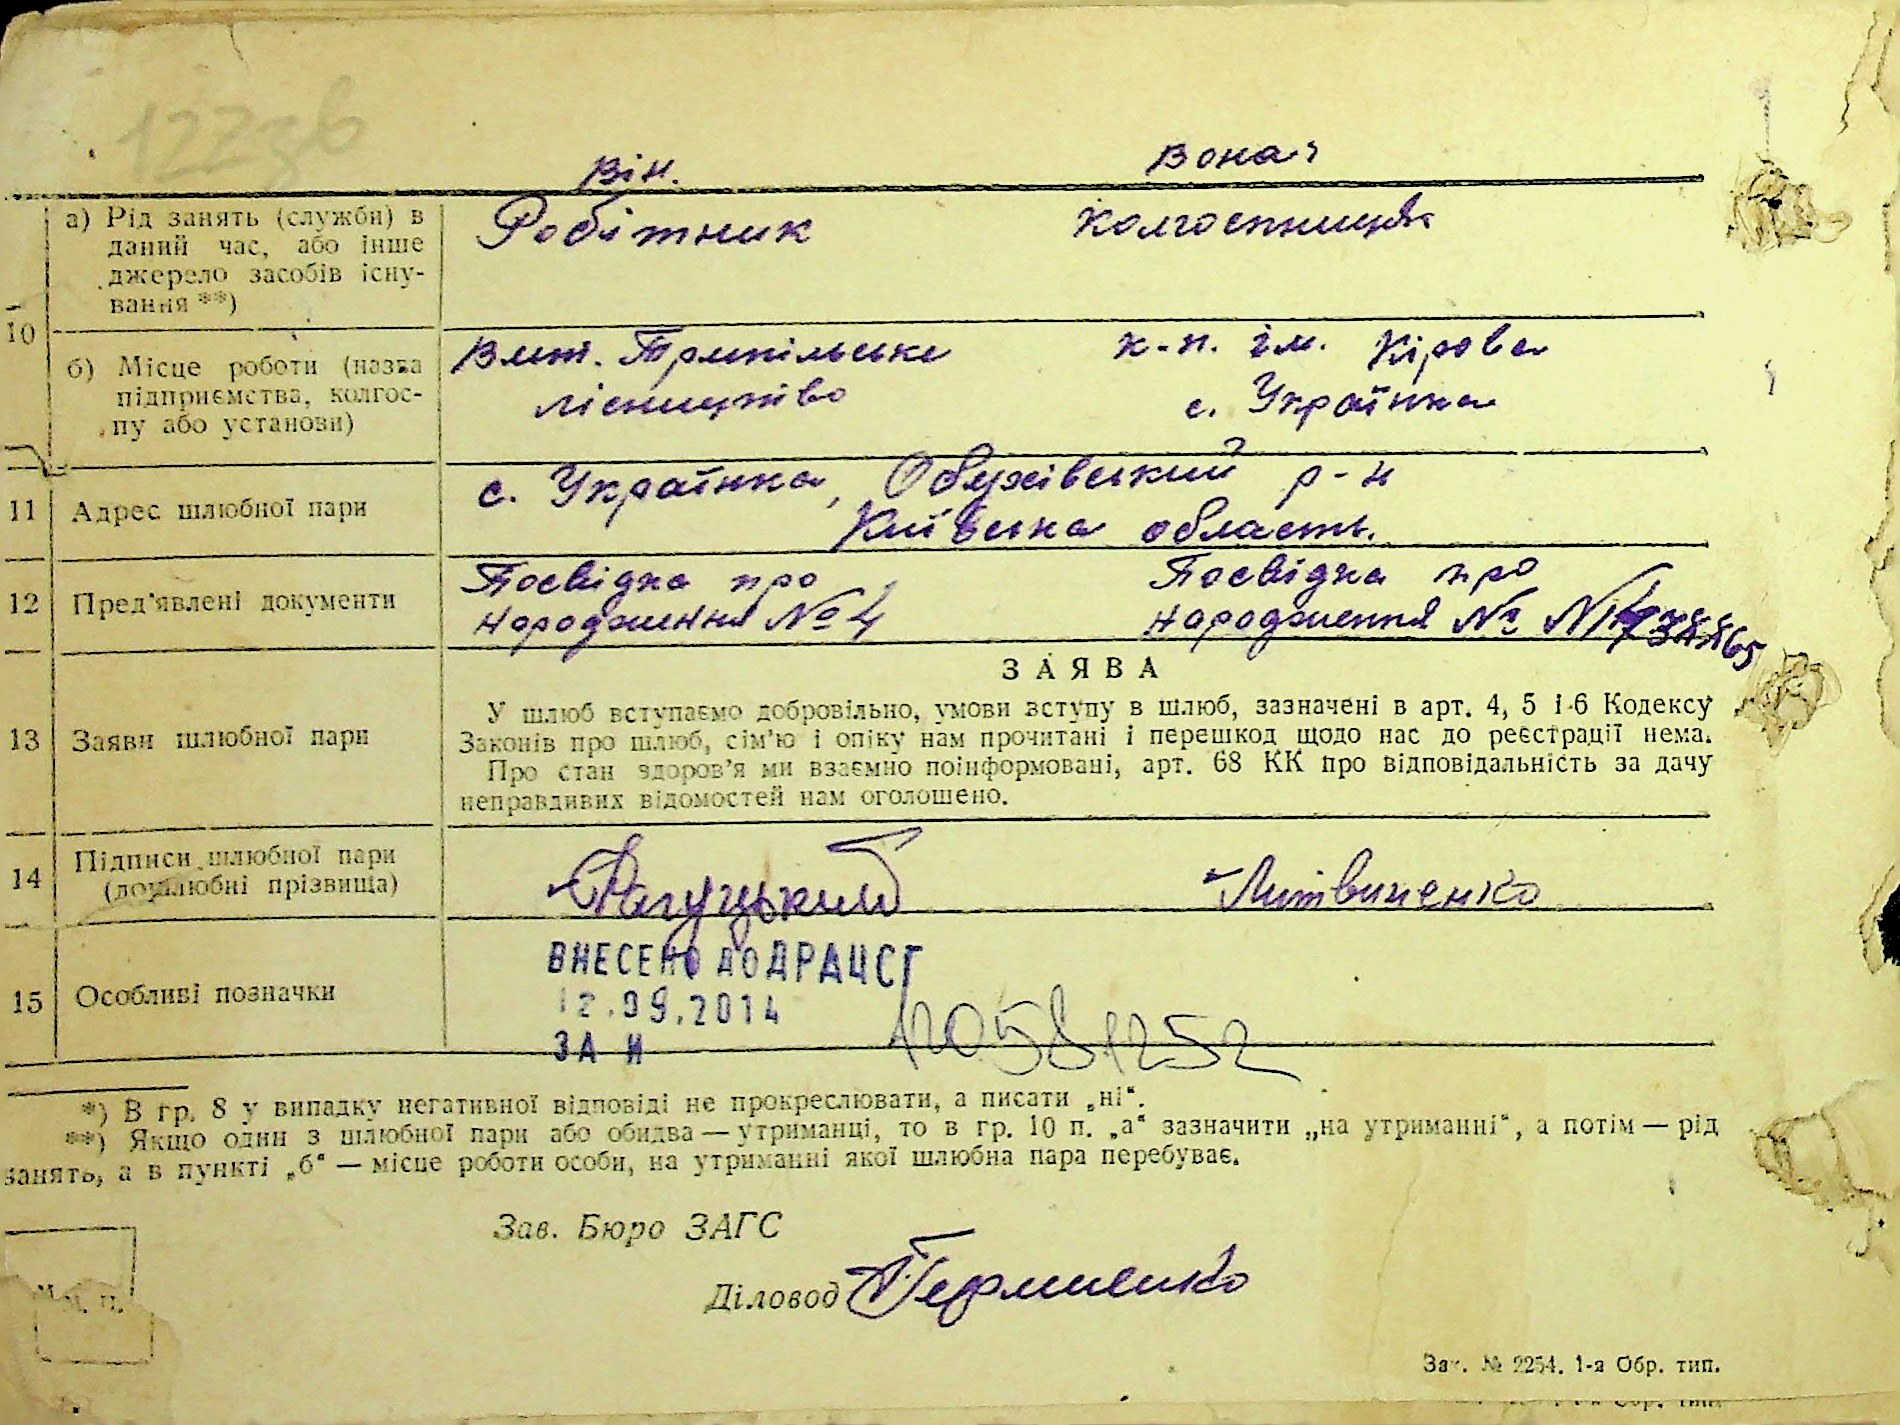 122зв
Він. Вона
10
а) Рід занять (служби) в
даний час, або інше
джерело засобів існу-
вання **)
Робітник Колгоспниця
б) Місце роботи (назва
підприємства, колгос-
пу або установи)
Трипільське
лісництво
к-п. ім. Кірова
с. Українка
11 Адрес шлюбної пари
с. Українка, Обухівський р-н
Київська область.
12 Пред'явлені документи
Посвідка про
народження № 4
Посвідка про
народження №
13 Заяви шлюбної пари
ЗАЯВА
У шлюб вступаємо добровільно, умови вступу в шлюб, зазначені в арт. 4, 5 і 6 Кодексу
Законів про шлюб, сім'ю і опіку нам прочитані і перешкод щодо нас до реєстрації нема.
Про стан здоров'я ми взаємно поінформовані, арт. 68 КК про відповідальність за дачу
неправдивих відомостей нам оголошено.
14 Підписи шлюбної пари
(дошлюбні прізвища)
Литвиненко
15 Особливі позначки
ВНЕСЕНО ДО ДРАЦСГ
12.09.2014
ЗА N
*) В гр. 8 у випадку негативної відповіді не прокреслювати, а писати „ні“.
**) Якщо один з шлюбної пари або обидва — утриманці, то в гр. 10 п. „а“ зазначити „на утриманні“, а потім — рід
занять, а в пункті „б“ — місце роботи особи, на утриманні якої шлюбна пара перебуває.
Зав. Бюро ЗАГС
Діловод
М. П.
Зак. № 2254. 1-а Обр. тип.